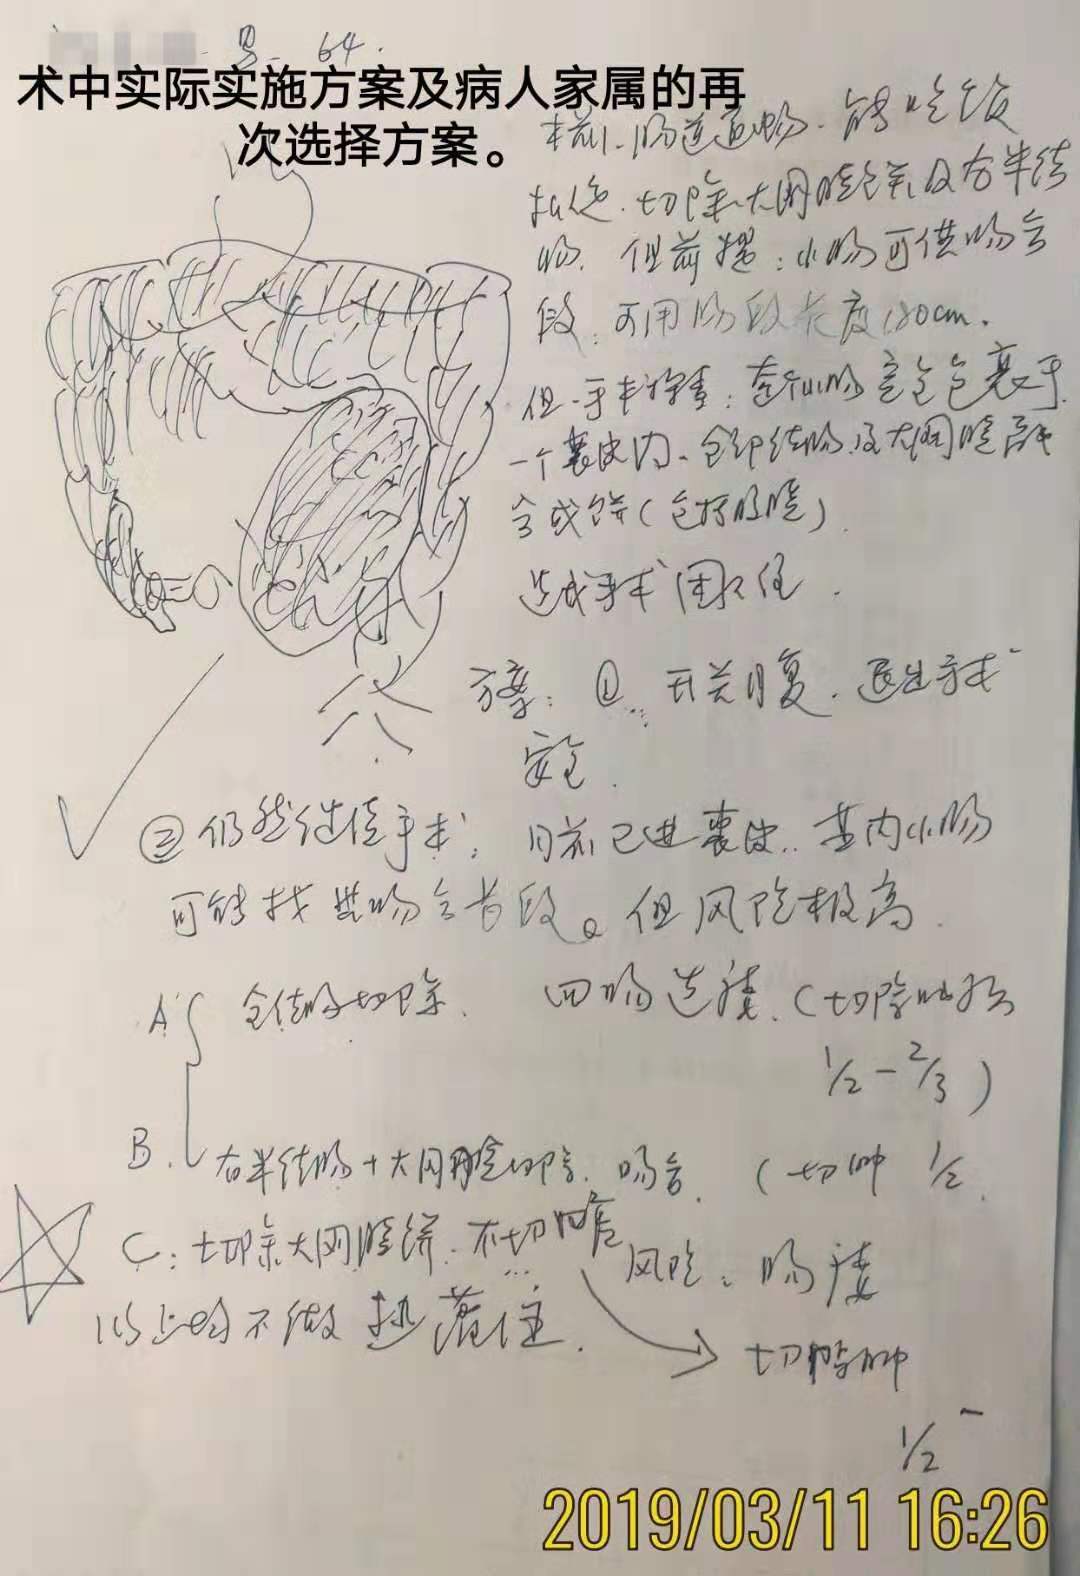 男 64.
术中实际实施方案及病人家属的再
次选择方案。
术前、肠道通畅、能吃饭
拟似、切除大网膜饼及右半结
肠、但前提：小肠可供吻合
段、可用肠段长度180cm.
但手术探查：全小肠完全包裹于
一个囊皮内、全部结肠及大网膜融
合成饼（包括肠腔）.
造成手术困住.
方案：① 开关腹、退出手术
安全.
② 仍然继续手术；目前已进囊皮、其内小肠
可能找出吻合肠段。但风险极高.
A. 全结肠切除、回肠造瘘、（切除肿瘤
1/2－2/3）
B. 右半结肠＋大网膜切除、吻合.（切肿 1/2.
C: 切除大网膜饼、不切肠
风险：肠瘘
以上均不做热灌注.
切除肿
1/2
2019/03/11 16:26